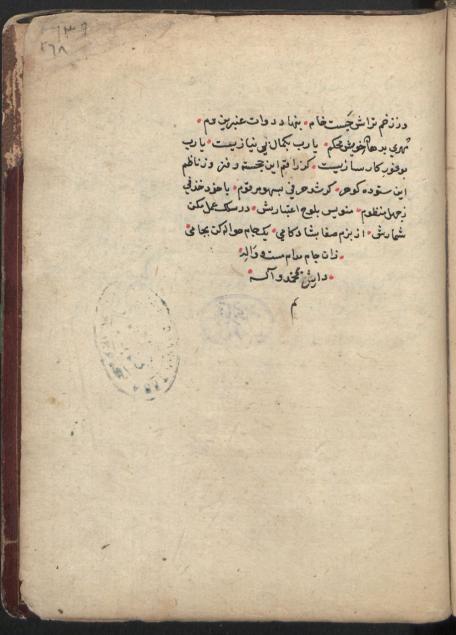 ۶۳۹
۲۶۸
وز زخم تراش جست خام • بنهاد دوات عنبرین فم •
مهری بدهان خویش محکم • یا رب بکمال بی نیازیت • یا رب
بوفور کارسازیت • کز راقم این خجسته دفتر وز ناظم
این ستوده کوهر • کر شد حرفی بسهو مرقوم • یا
زجهل منظوم • منویس بلوح اعتبارش • در سلک عمل مکن
شمارش • از بزم صفا بشادکامی • یک جام حواله کن بجامی •
زان جام مدام مست و واله •
دارش بمحمد و آله •
م